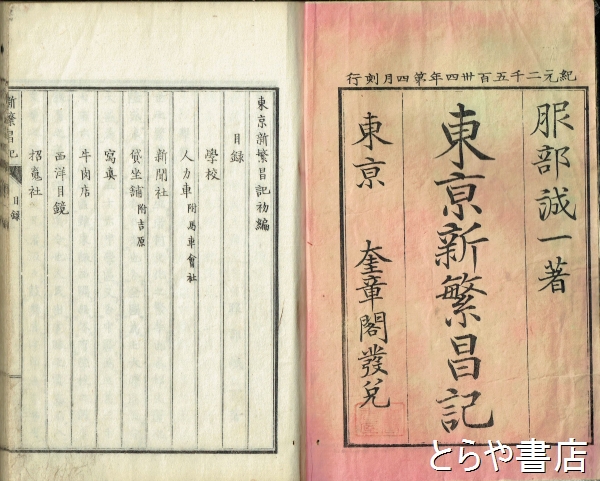 紀元二千五百卅四年第四月刻行
服部誠一著
東亰新繁昌記
東亰 奎章閣發兌
東京新繁昌記初編
目録
學校
人力車 附馬車會社
新聞社
貸坐舗 附吉原
寫眞
牛肉店
西洋目鏡
招魂社
新繁昌記 目録
とらや書店